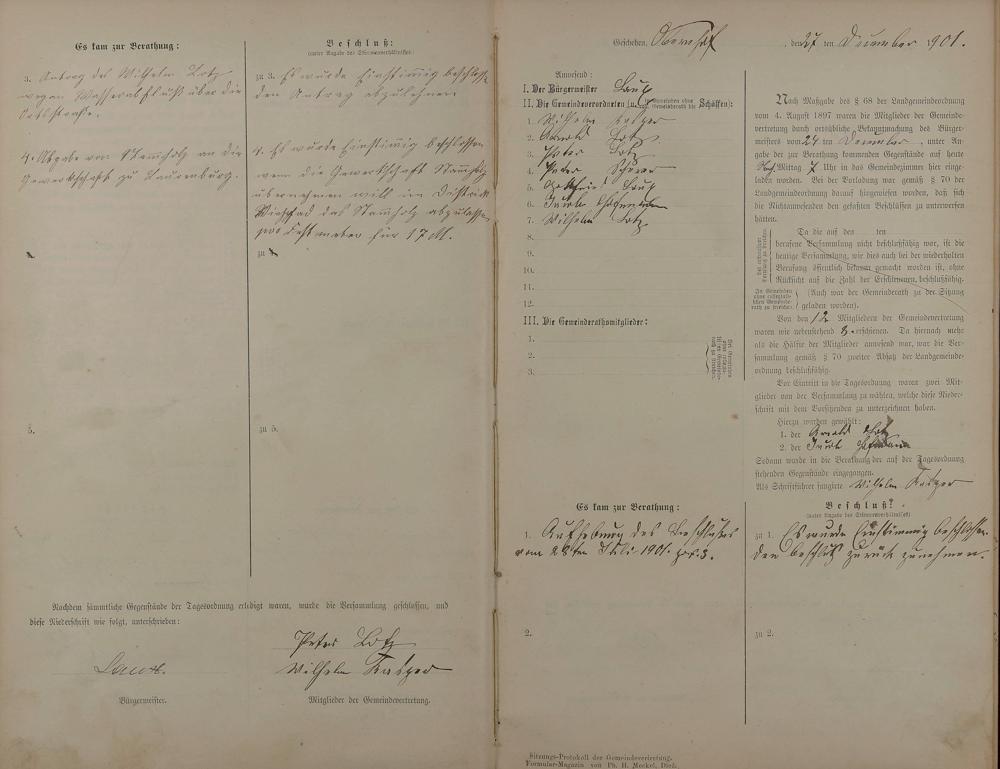 Es kam zur Berathung:
3. Antrag des Wilhelm Lotz
wegen Wasserabfluß über die
Ortsstraße.
4. Abgabe von Stammholz an die
Gewerkschaft zu Laurenburg.
5.
Beschluß:
(unter Angabe des Stimmenverhältnisses)
zu 3. Es wurde Einstimmig beschlossen
den Antrag abzulehnen
4. Es wurde Einstimmig beschlossen
wenn die Gewerkschaft Stammholz
übernehmen will im Distrikt
das Stammholz abzulassen
pro Festmeter für 17 M.
zu 4
zu 5.
Nachdem sämmtliche Gegenstände der Tagesordnung erledigt waren, wurde die Versammlung geschlossen, und
diese Niederschrift wie folgt, unterschrieben:
Peter Lotz
Wilhelm Kasper
Bürgermeister.
Mitglieder der Gemeindevertretung.
Geschehen, Obernhof, den 27 ten December 1901.
Anwesend:
I. Der Bürgermeister
II. Die Gemeindeverordneten (u. in Gemeinden ohne Gemeinderath die Schöffen):
1. Wilhelm Kasper
2. Arnold Lotz
3. Peter Lotz
4. Peter
5.
6. Jacob
7. Wilhelm Lotz
8.
9.
10.
11.
12.
III. Die Gemeinderathsmitglieder:
1.
2.
3.
Nach Maßgabe des § 68 der Landgemeindeordnung
vom 4. August 1897 waren die Mitglieder der Gemeinde-
vertretung durch ortsübliche Bekanntmachung des Bürger-
meisters vom 24 ten December, unter An-
gabe der zur Berathung kommenden Gegenstände auf heute
Nach Mittag 7 Uhr in das Gemeindezimmer hier einge-
laden worden. Bei der Vorladung war gemäß § 70 der
Landgemeindeordnung darauf hingewiesen worden, daß sich
die Nichtanwesenden den gefaßten Beschlüssen zu unterwerfen
hätten.
Da die auf den ten
berufene Versammlung nicht beschlußfähig war, ist die
heutige Versammlung, wie dies auch bei der wiederholten
Berufung öffentlich bekannt gemacht worden ist, ohne
Rücksicht auf die Zahl der Erschienenen, beschlußfähig.
In Gemeinden
ohne collegialischen
Gemeinderath
zu streichen.
(Auch war der Gemeinderath zu der Sitzung
geladen worden).
Von den 12 Mitgliedern der Gemeindevertretung
waren wie nebenstehend 8 erschienen. Da hiernach mehr
als die Hälfte der Mitglieder anwesend war, war die Ver-
sammlung gemäß § 70 zweiter Absatz der Landgemeinde-
ordnung beschlußfähig.
Vor Eintritt in die Tagesordnung waren zwei Mit-
glieder von der Versammlung zu wählen, welche diese Nieder-
schrift mit dem Vorsitzenden zu unterzeichnen haben.
Hierzu wurden gewählt:
1. der Arnold Lotz
2. der Jacob
Sodann wurde in die Berathung der auf der Tagesordnung
stehenden Gegenstände eingegangen.
Als Schriftführer fungirte Wilhelm Kasper
Es kam zur Berathung:
1. Aufhebung des Beschlußes
vom 28ten Juli 1901. pos. 3.
2.
Beschluß:
(unter Angabe des Stimmenverhältnisses)
zu 1. Es wurde Einstimmig beschlossen
den Beschluß zurück zunehmen.
zu 2.
Sitzungs-Protokoll der Gemeindevertretung.
Formular-Magazin von Ph. H. Meckel, Diez.